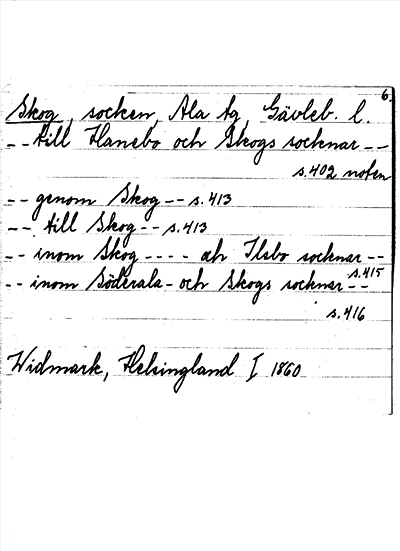 6.
Skog, socken, Ala tg, Gävleb. l.
-- till Hanebo och Skogs socknar --
s.402 noten
-- genom Skog -- s.413
-- till Skog -- s.413
-- inom Skog ---- och Ilsbo socknar --
s.415
-- inom Söderala - och Skogs socknar --
s.416
Widmark, Helsingland I 1860